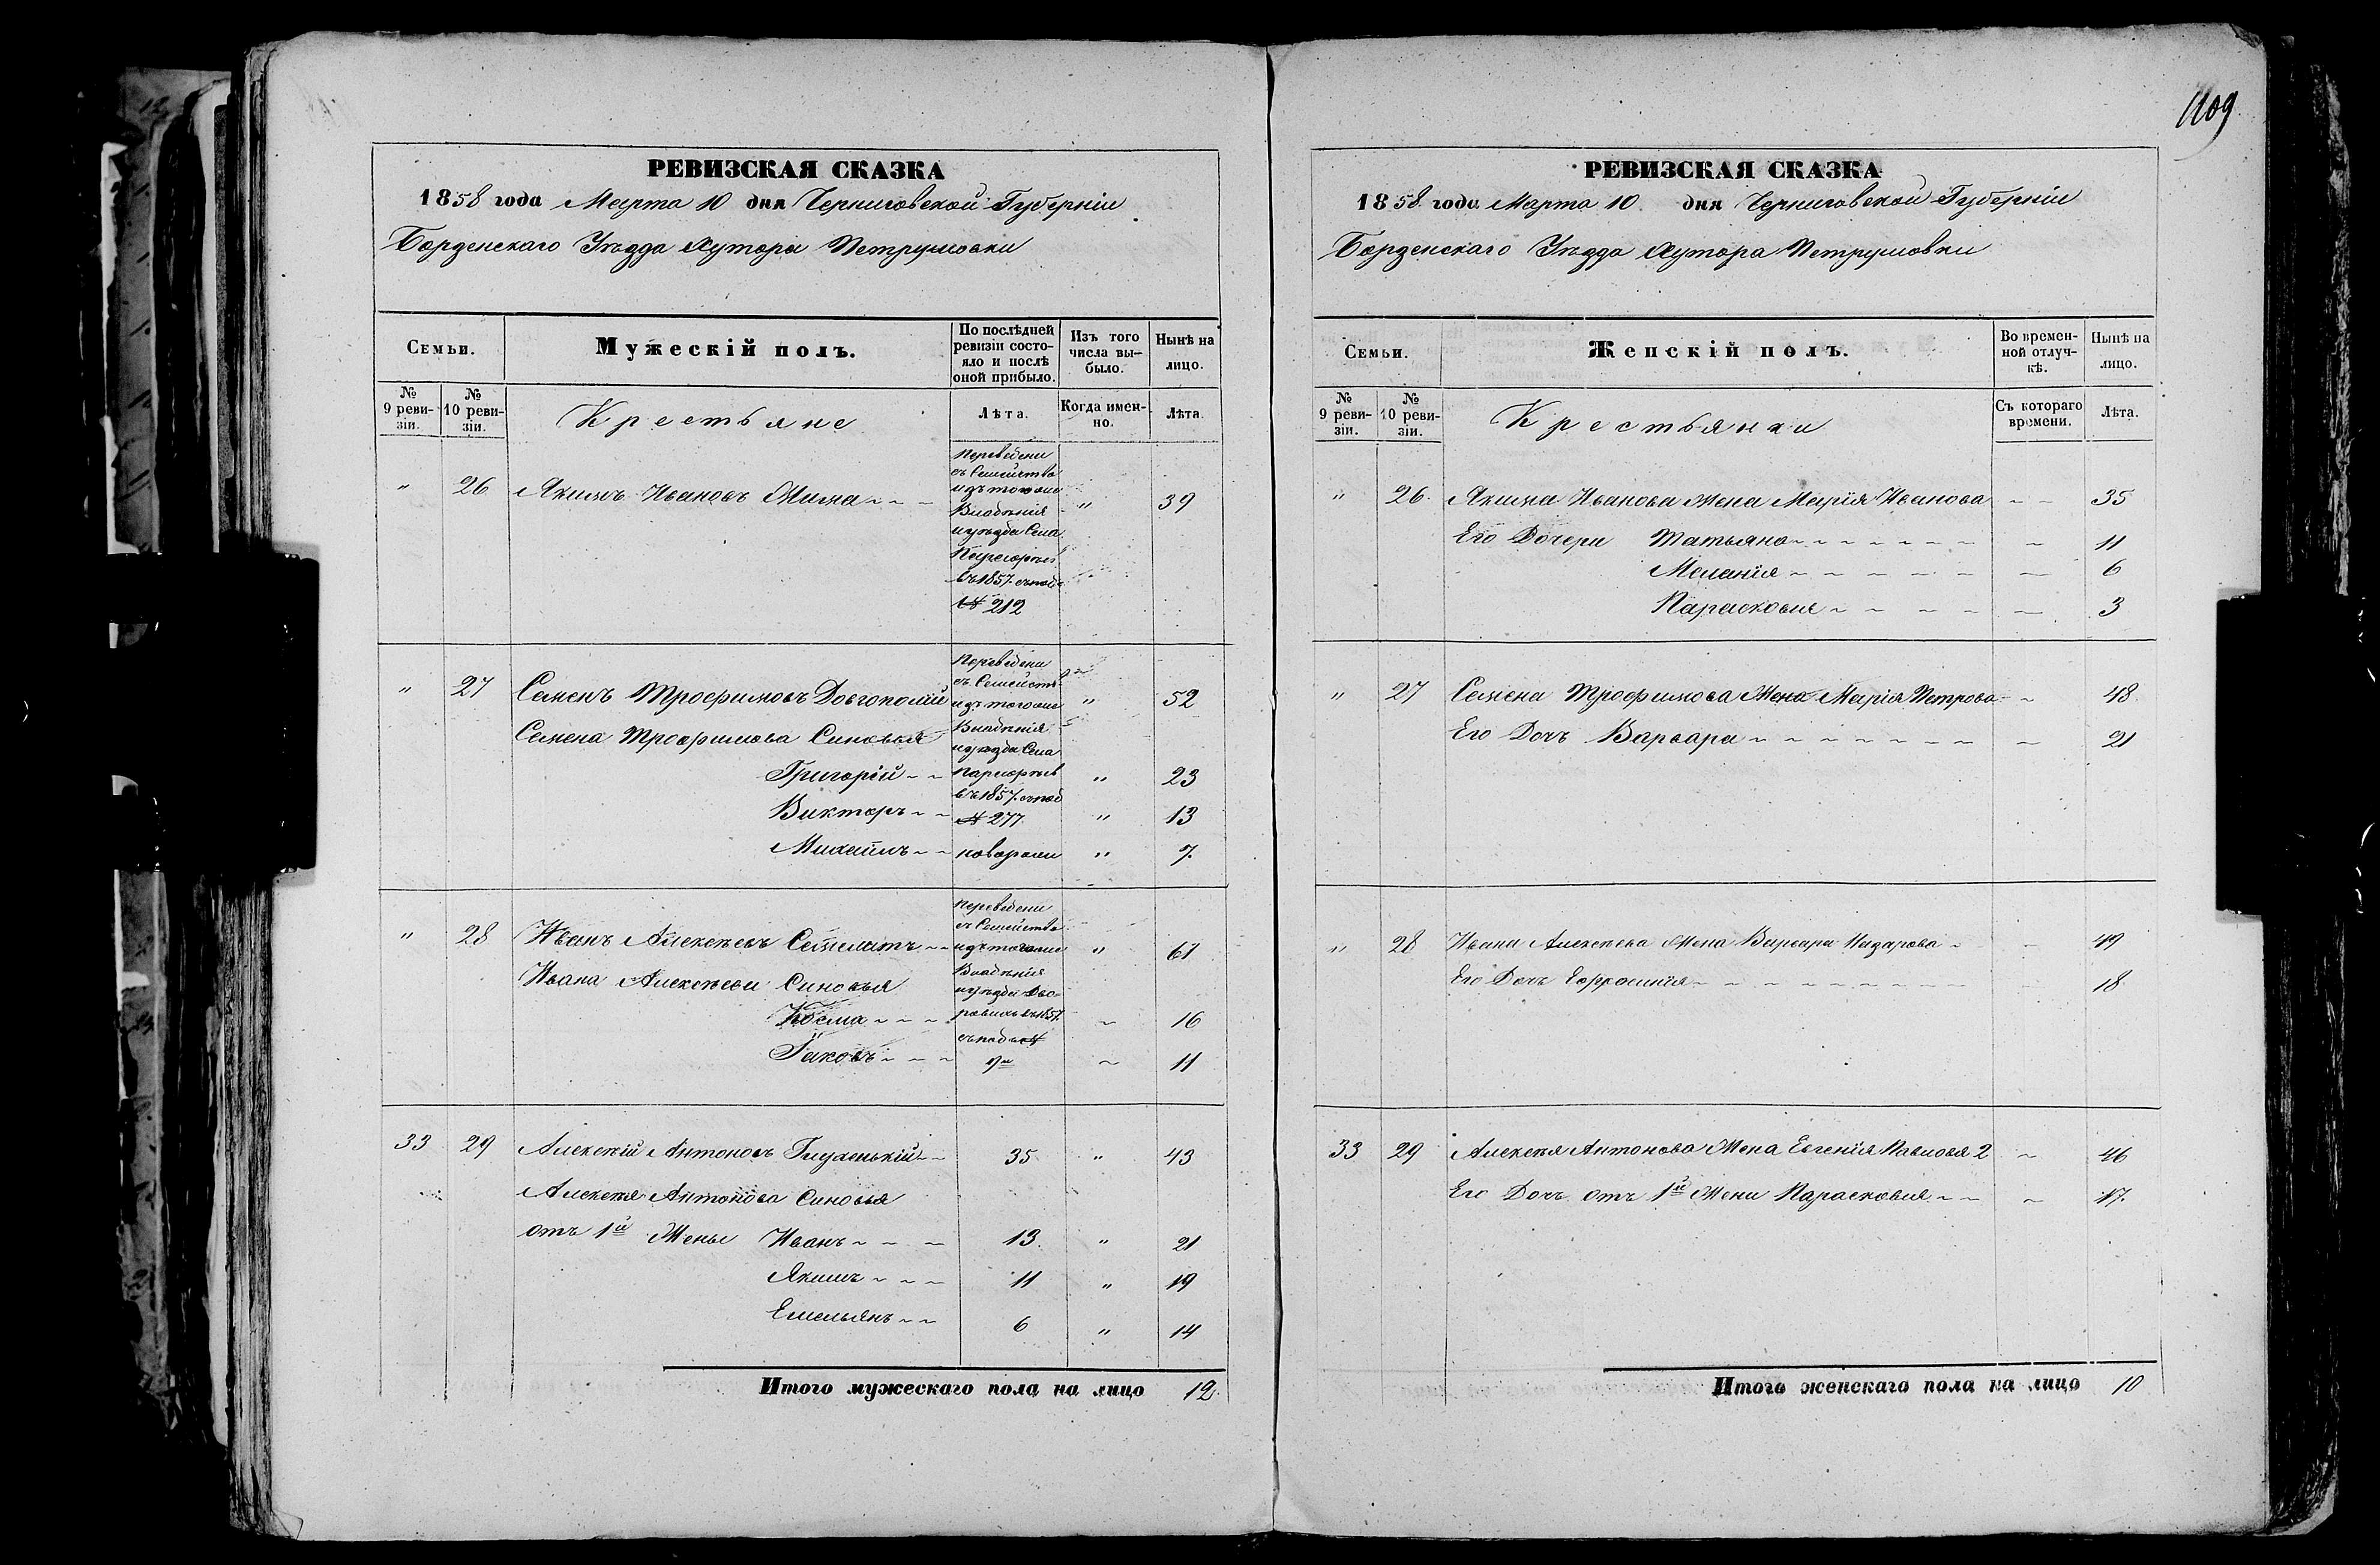 1109
РЕВИЗСКАЯ СКАЗКА
1858 года Марта 10 дня Черниговской Губерніи
Борзенскаго Уѣзда Хутора Петрушовки
Семьи. Мужескій полъ. По послѣдней ревизіи состояло и послѣ оной прибыло. Изъ того числа выбыло. Нынѣ на лицо.
№ 9 ревизіи. № 10 ревизіи. Крестьяне Лѣта. Когда именно. Лѣта.
" 26 Якимъ Ивановъ " 39
Переведени
съ Семейства
изъ того же
Владѣнія
и уѣзда Села
въ 1857 съ под
№ 212
" 27 Семенъ Трофимовъ Довгополій " 52
Семена Трофимова Синовья
Григорій " 23
Викторъ " 13
Михаилъ новорожи " 7
Переведени
съ Семейств
изъ того же
Владѣнія
и уѣзда Села
въ 1857 съ под
№ 277
" 28 Иванъ Алексѣевъ " 61
Ивана Алексѣева Синовья
Косма 16
Яковъ 11
Переведени
съ Семейства
изъ того же
Владѣнія
и уѣзда Дво-
ровихъ въ 1857
съ под №
33 29 Алексѣй Антоновъ Глуженькій 35 " 43
Алексѣя Антонова Синовья
отъ 1й Жены Иванъ 13 " 21
Якимъ 11 " 19
Емельянъ 6 " 14
Итого мужескаго пола на лицо 12
РЕВИЗСКАЯ СКАЗКА
1858 года Марта 10 дня Черниговской Губерніи
Борзенскаго Уѣзда Хутора Петрушовки
Семьи. Женскій полъ. Во временной отлучкѣ. Нынѣ на лицо.
№ 9 ревизіи. № 10 ревизіи. Крестьянки Съ котораго времени. Лѣта.
" 26 Якима Иванова Жена Марія Иванова 35
Его Дочери Татьяна 11
Меланія 6
Парасковія 3
" 27 Семена Трофимова Жена Марія Петрова 48
Его Дочь Варвара 21
" 28 Ивана Алексѣева Жена Варвара Назарова 49
Его Дочь Ефросинія 18
33 29 Алексѣя Антонова Жена Евгенія Павлова 2 46
Его Дочь отъ 1й Жени Парасковія 17
Итого женскаго пола на лицо 10